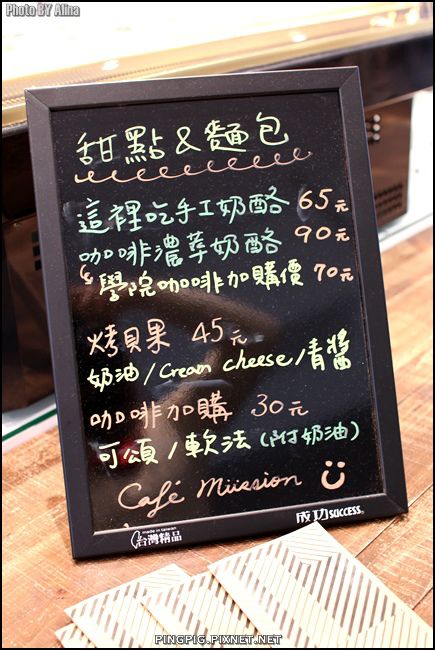 Photo BY Alina
甜點&麵包
這裡吃手工奶酪 65元
咖啡濃萃奶酪 90元
學院咖啡加購價 70元
烤貝果 45元
奶油/Cream cheese/青醬
咖啡加購 30元
可頌/軟法(附奶油)
Café Miission
made in taiwan
台灣精品
成功SUCCESS®
PINGPIG.PIXNET.NET